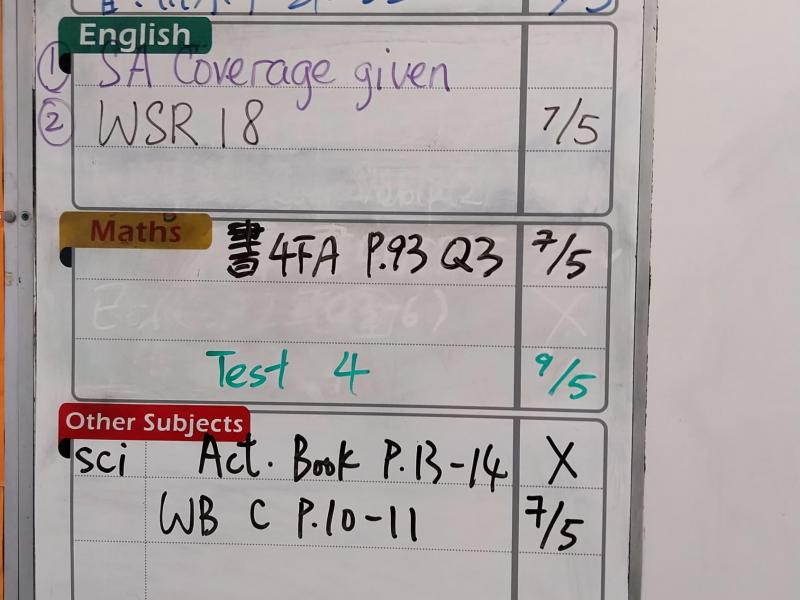 English
① SA Coverage given
② WSR 18 7/5
Maths
書 4FA P.93 Q3 7/5
Test 4 9/5
Other Subjects
sci Act. Book P.13-14 X
WB C P.10-11 7/5